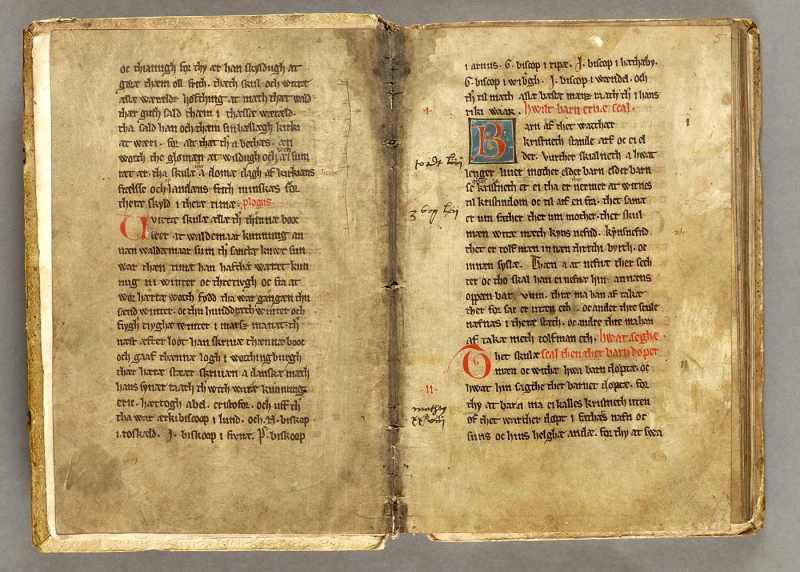 oc thianugh for thy ær han skyldugh at
gøræ thæm oll frith. thæth skal och witæ
allæ wæreldz høfthing at mæth thæt wald
thær guth sald thæm i thessæ wæræld.
tha sald han och thæm sin hællægh kirki
at wæri. for alt thæt a bethæs. æn
worth the glømæn at wisdugh och æi sum
ræt æræ. tha skulæ a domæ dagh af kirkiens
frælse och landens frith minskæs for
theræ skyld i theræ timæ. plogus
Uvitæ skulæ allæ ther thinnæ boc
seer at waldemaar kunnung an
næn waldæmaar sun ther sanctæ knwt sun
war then timæ han hafthæ wæræt kun
nug ni winter oc thretiugh oc fra at
wor hærræ woth fødd tha war gangæn thu
send winter. oc thu hundræth winter och
firgh tiughæ winter i marsæ manæth th
næst æfter loot han skriuæ thænnæ boc
och gaaf thænnæ logh i worthingburgh
thær hæræ stær skriuæn a danskæ mæth
hans synær raath th with waræ kunnung
eric. hærtogh abel. cristofor. och uffæ th
tha war ærkibiscoop i lund. och. N. biskop
i roskæld. J. biskoop i fiunæ. P. biskoop
i arnus. G. biscop i ripæ. J. biscop i hæthaby.
G. biscop i wibgh. J. biscop i wændel. och
th til mæth allæ bæstæ mænz raath th i hans
riki waar. hwilt barn ær u.e seal.
Barn af thet warthær
kristneth standæ arf oc ei el
der. vurther skilneth a hwat
lenger liuer mother elder barn elder barn
se kristneth er ei tha er nermer at witnes
til kristndom oc til arf en fra. ther samæ
er um father ther um mother. thet skil
mæn witæ mæth kyns nefnd. kynsnefnd
ther er tolf mæn innæn thrithi byrth. oc
innæn syslæ. Thæn a at nefnæ ther sech
ter oc tho skal han ei nefnæ hin annæns
oppæn bar. Vuin. thæt ma han af takæ
ther for sar er uten eth. oc andet thre sculæ
næfnæs i theræ stath. oc andre thre ma han
af takæ mæth tolfman eth. hwat seghe
Thet skulæ seal then ther barn dopet
mæn oc withæ hwa barn døptæ. oc
hwat hin sagthe ther barnet døptæ. for
thy at barn ma ei kalles kristneth uten
of thet warther døpt i fathæs nafn oc
suns oc hins helghæ andæ. for thy at swa